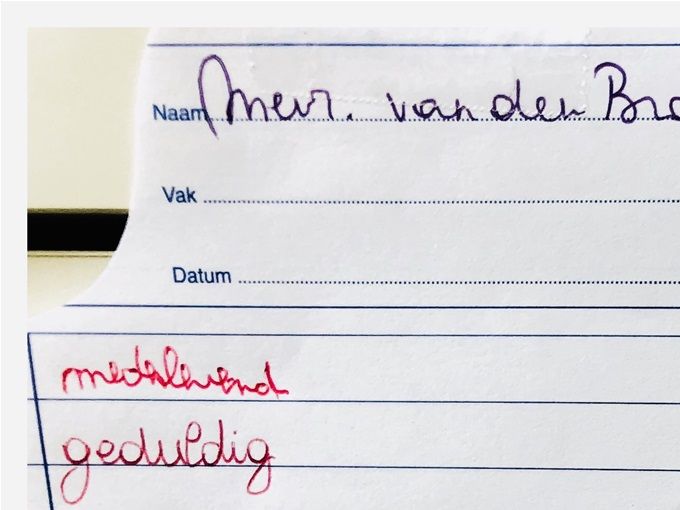 Naam Mevr. van den Bro
Vak
Datum
medelevend
geduldig